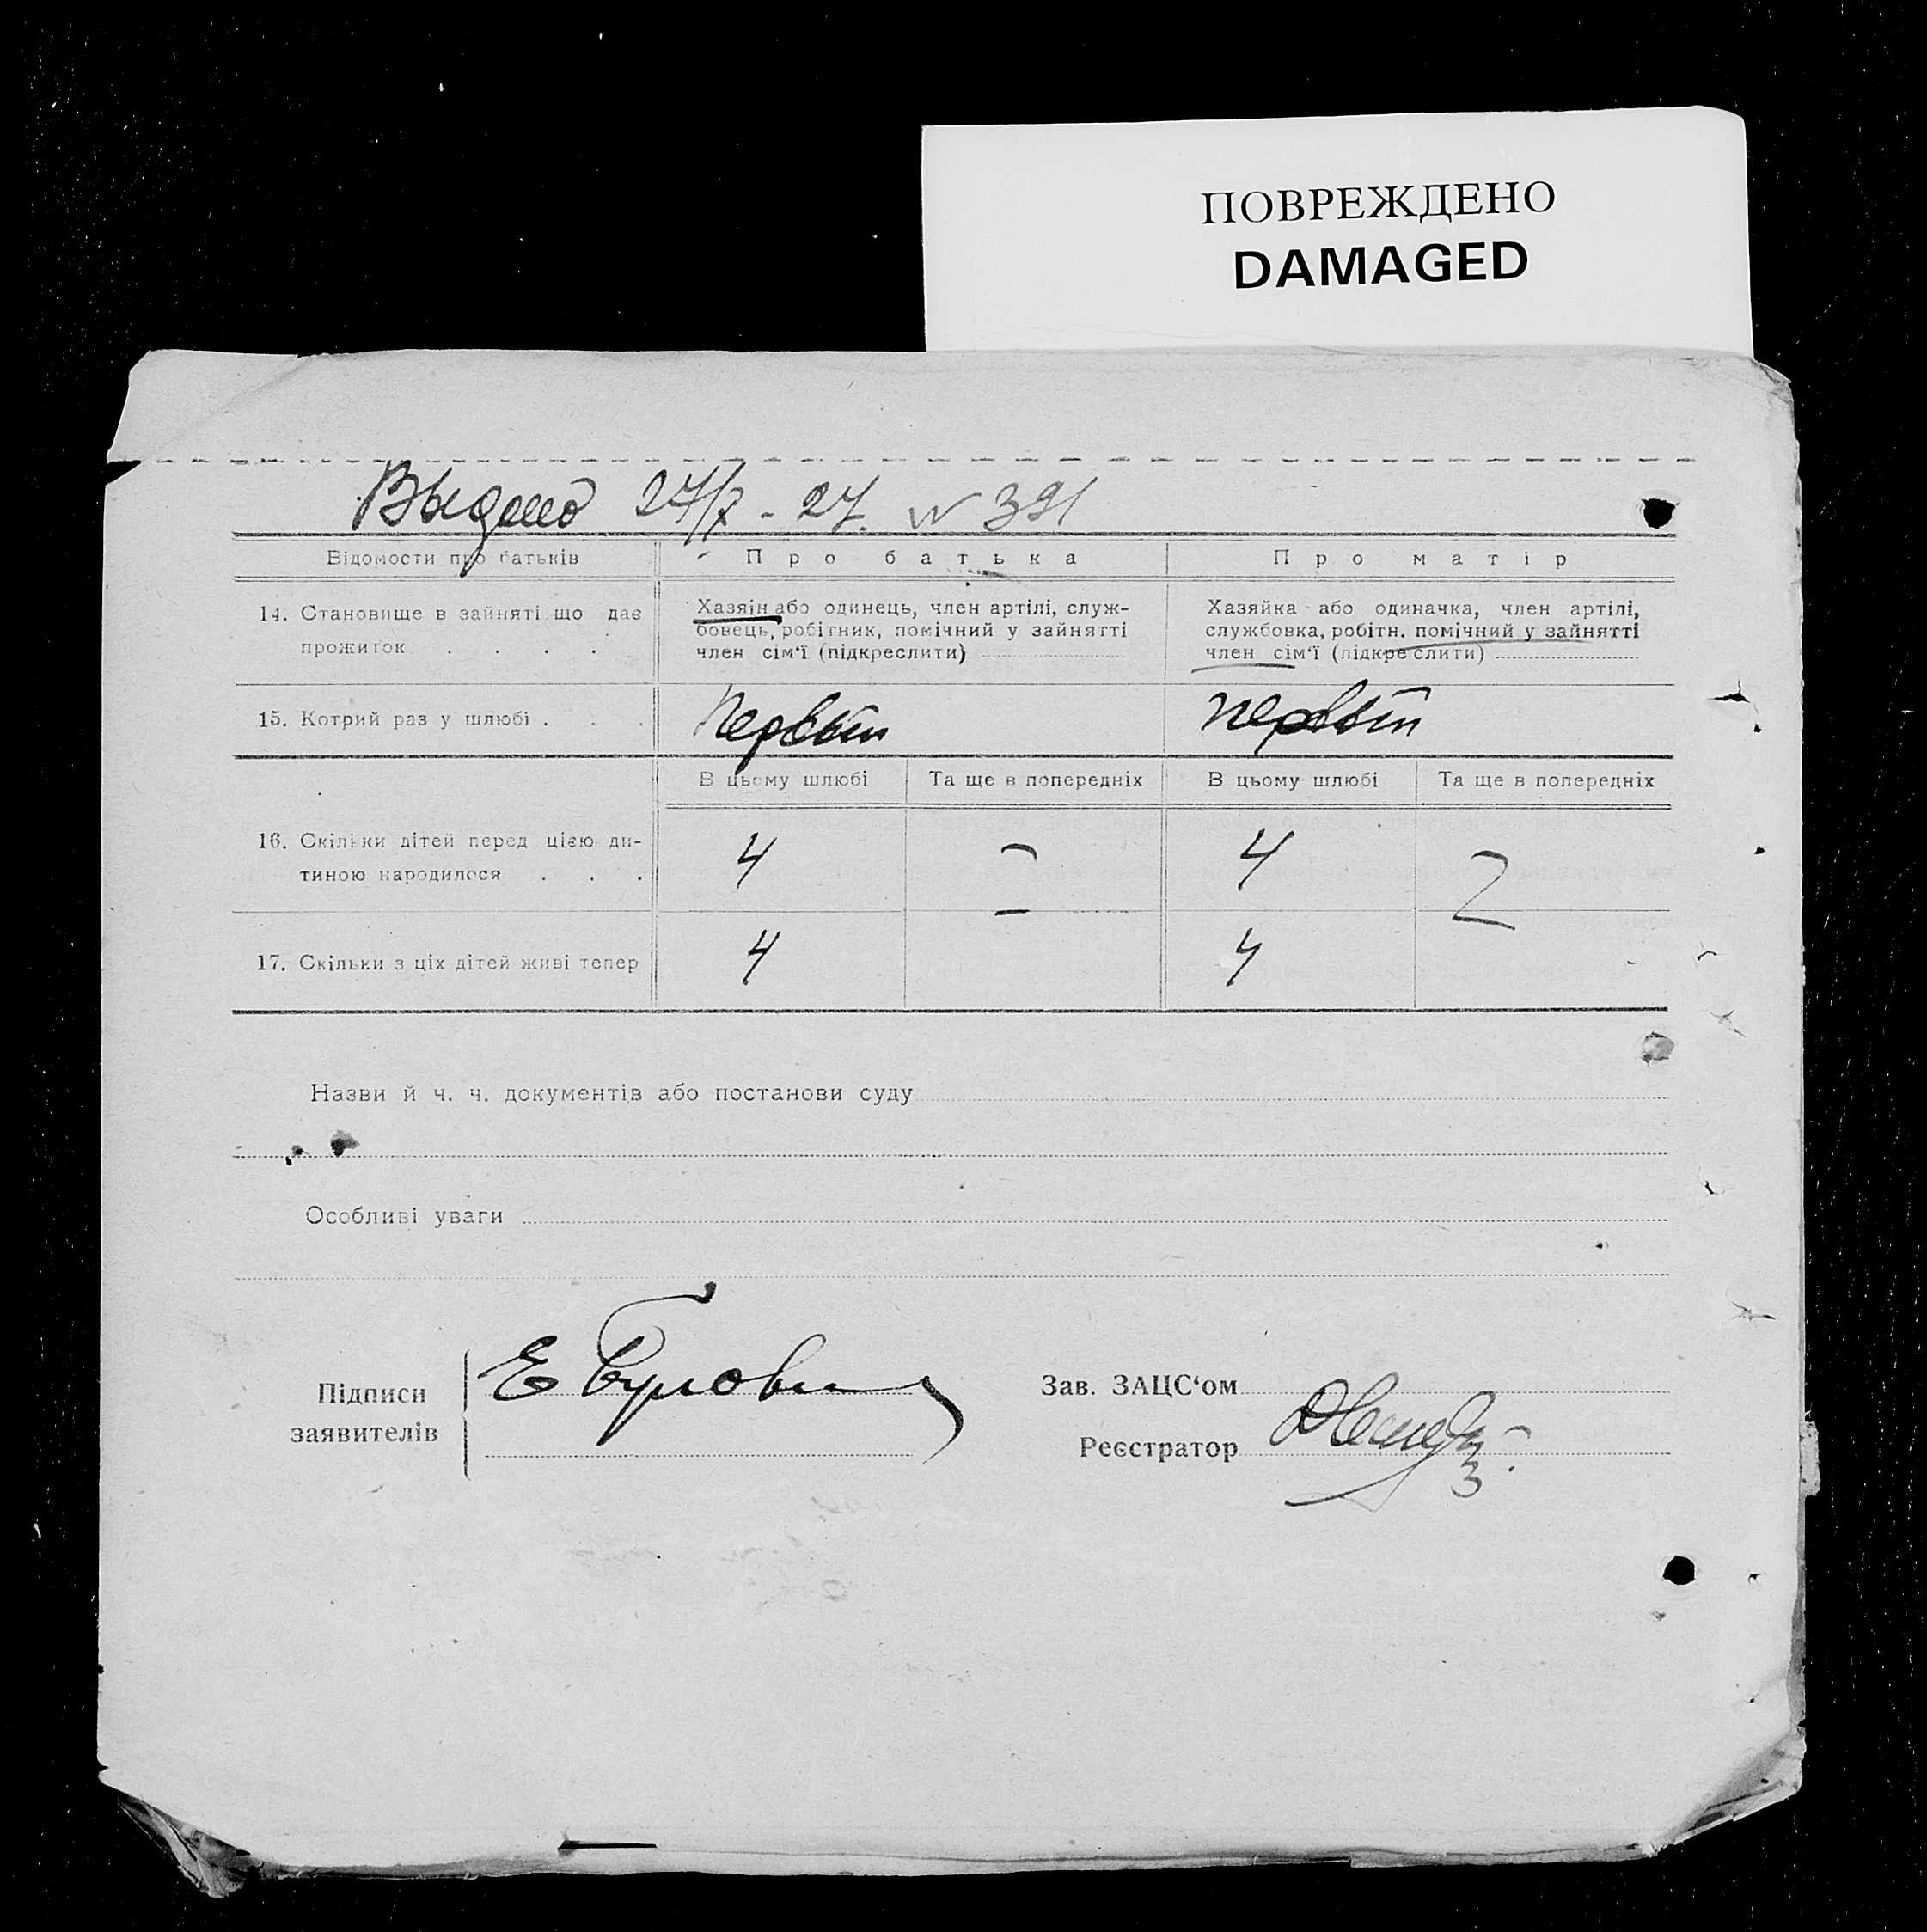 ПОВРЕЖДЕНО
DAMAGED
Выдано 27/X - 27. N 391
Відомости про батьків Про батька Про матір
14. Становище в зайняті що дає прожиток . . . .
Хазяїн або одинець, член артілі, служ-
бовець, робітник, помічний у зайнятті
член сім'ї (підкреслити)
Хазяйка або одиначка, член артілі,
службовка, робітн. помічний у зайнятті
член сім'ї (підкреслити)
15. Котрий раз у шлюбі . . . Первый первый
В цьому шлюбі Та ще в попередніх В цьому шлюбі Та ще в попередніх
16. Скільки дітей перед цією ди-
тиною народилося . . . 4 4
17. Скільки з ціх дітей живі тепер 4 4
Назви й ч. ч. документів або постанови суду
Особливі уваги
Підписи
заявителів
Е
Зав. ЗАЦС'ом
Реєстратор